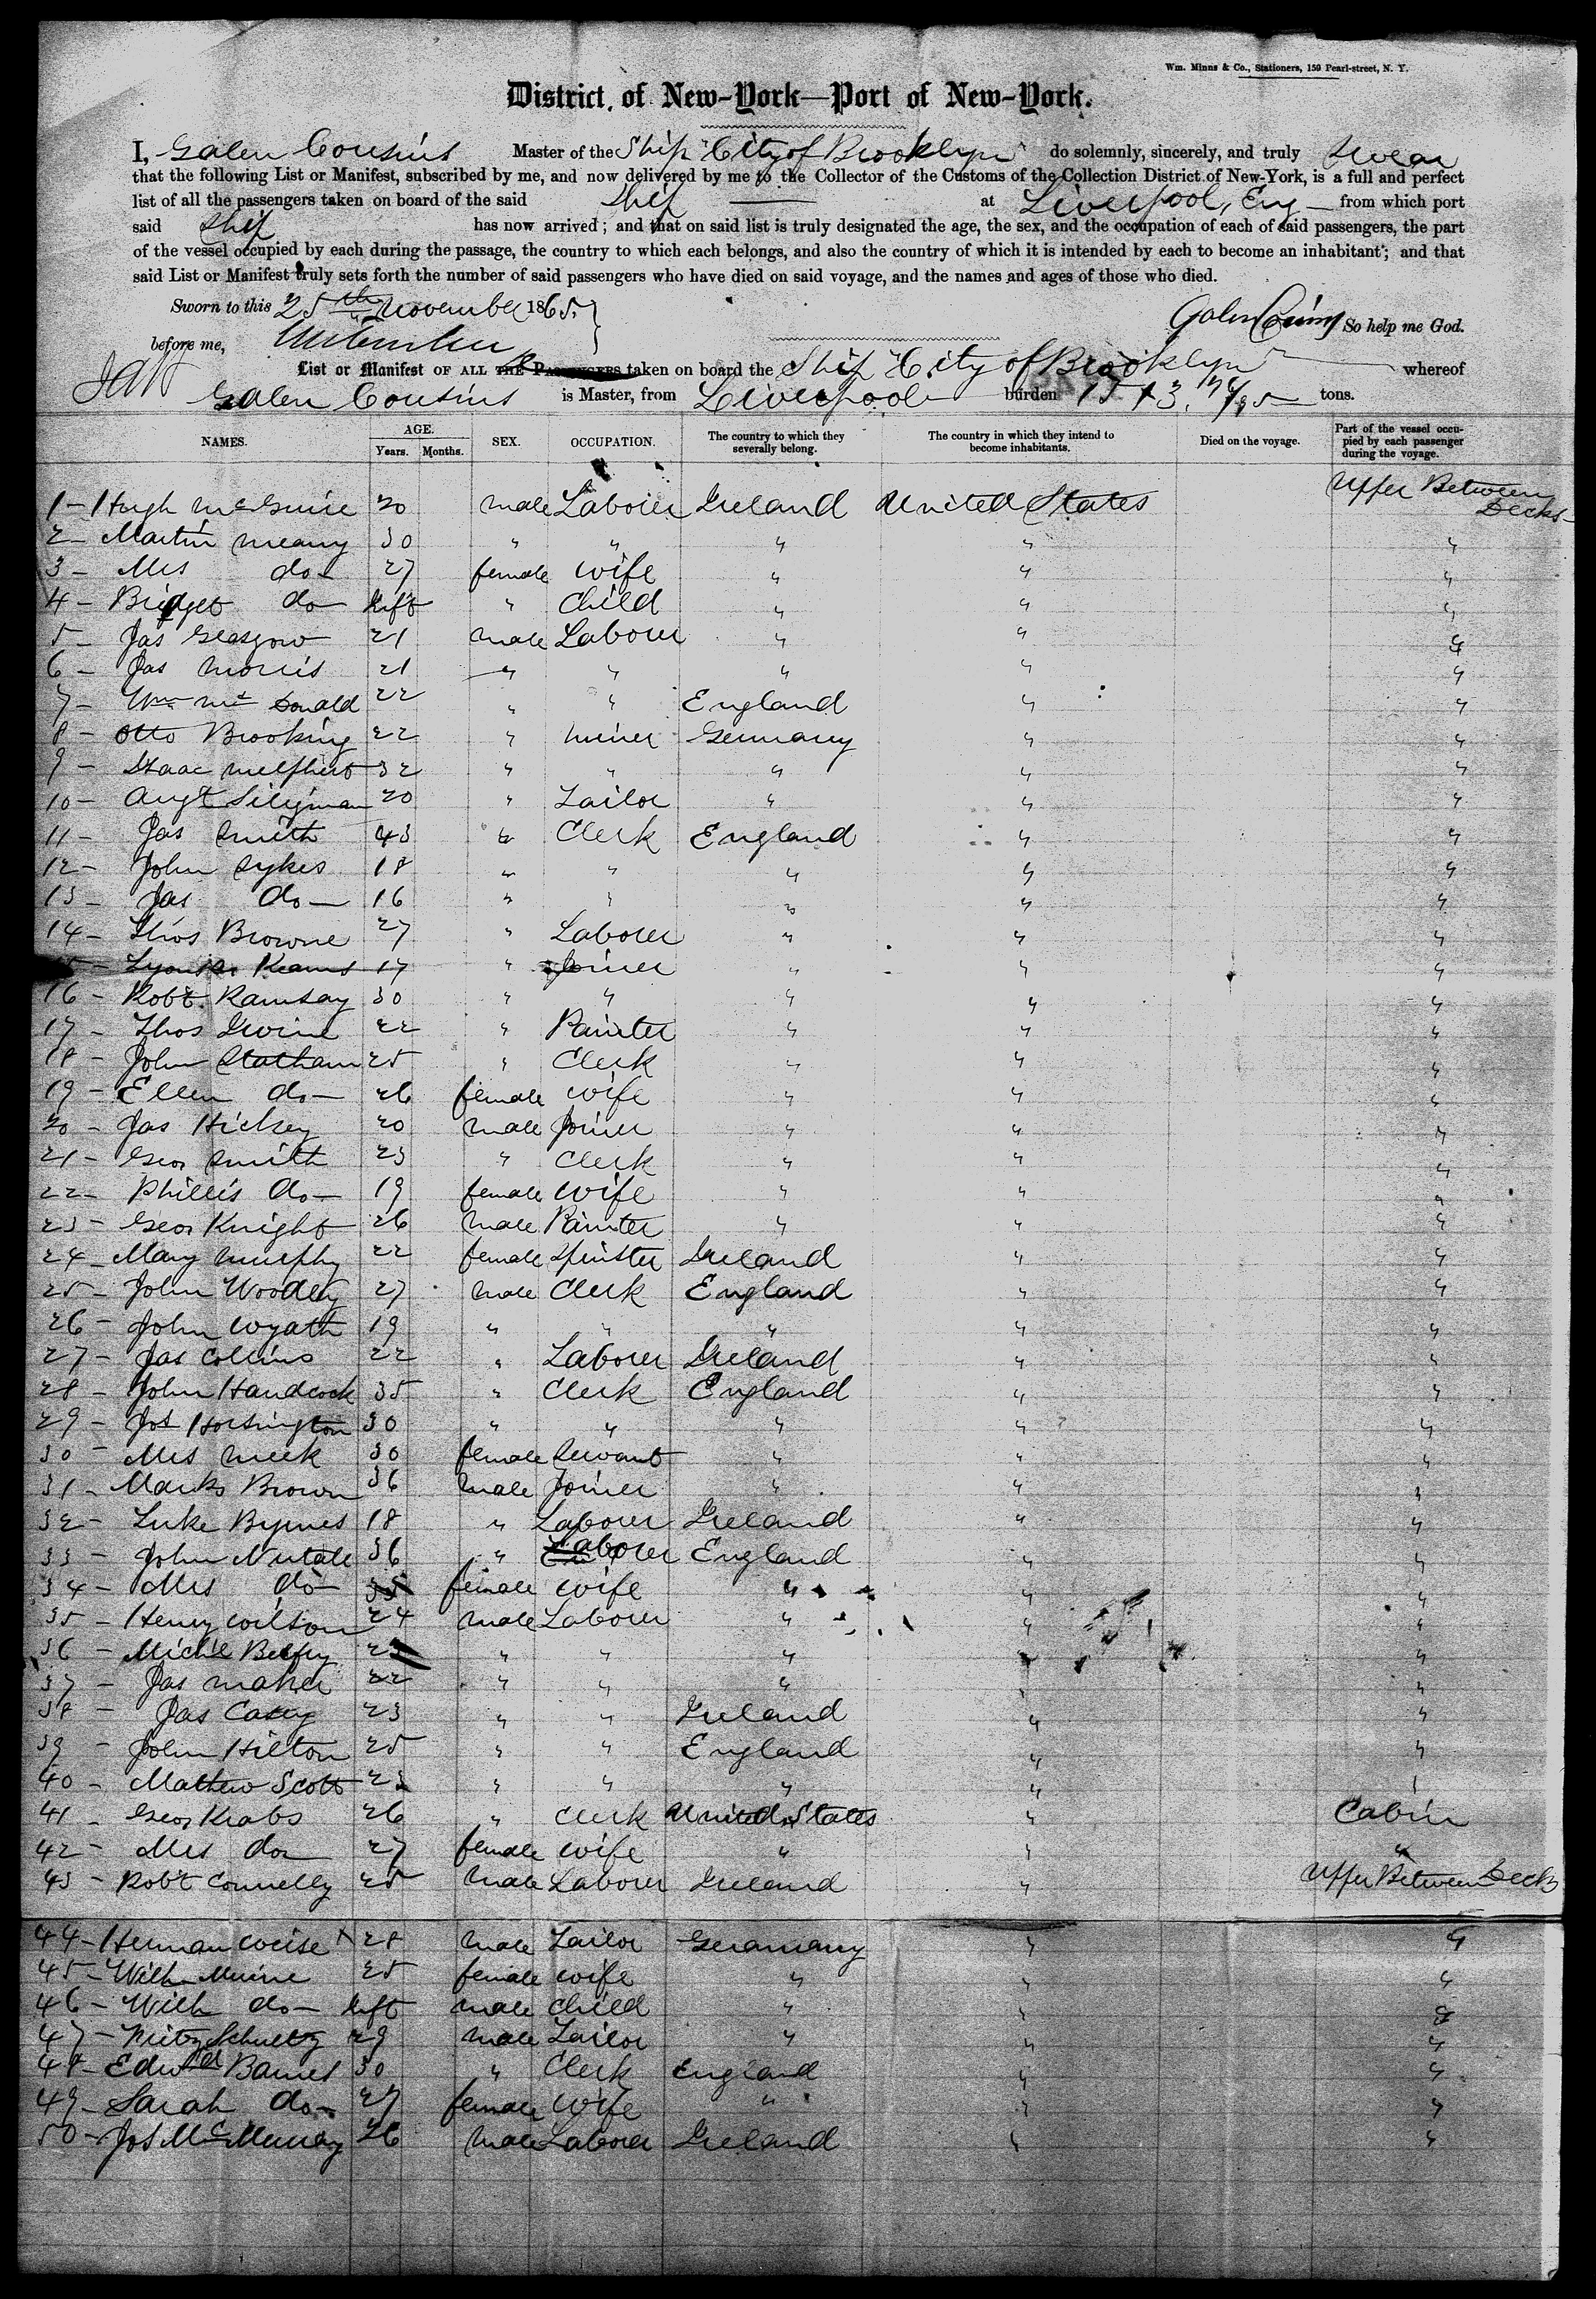 Wm. Minns & Co., Stationers, 159 Pearl-street, N. Y.
District of New-York—Port of New-York.
I, Galen Cousins Master of the Ship "City of Brooklyn" do solemnly, sincerely, and truly swear
that the following List or Manifest, subscribed by me, and now delivered by me to the Collector of the Customs of the Collection District of New-York, is a full and perfect
list of all the passengers taken on board of the said Ship at Liverpool, Eng from which port
said Ship has now arrived; and that on said list is truly designated the age, the sex, and the occupation of each of said passengers, the part
of the vessel occupied by each during the passage, the country to which each belongs, and also the country of which it is intended by each to become an inhabitant; and that
said List or Manifest truly sets forth the number of said passengers who have died on said voyage, and the names and ages of those who died.
Sworn to this 25th November 1865.
Galen Cousins So help me God.
before me,
List or Manifest OF ALL THE PASSENGERS taken on board the Ship "City of Brooklyn" whereof
Galen Cousins is Master, from Liverpool burden tons.
NAMES. AGE. Years. Months. SEX. OCCUPATION. The country to which they severally belong. The country in which they intend to become inhabitants. Died on the voyage. Part of the vessel occupied by each passenger during the voyage.
1 - Hugh McGuire 20 male Laborer Ireland United States Upper Between Decks
2 - Martin Meany 30 " " " " "
3 - Mrs do 27 female wife " " "
4 - Bridget do Inft " Child " " "
5 - Jas Glasgow 21 male Laborer " " "
6 - Jas Morris 21 " " " " "
7 - Wm McDonald 22 " " England " "
8 - Otto Brooking 22 " miner Germany " "
9 - Isaac 32 " " " " "
10 - Augt 20 " Tailor " " "
11 - Jas Smith 43 " Clerk England " "
12 - John Sykes 18 " " " " "
13 - Jas do 16 " " " " "
14 - Thos Browne 27 " Laborer " " "
15 - Kearns 17 " Joiner " " "
16 - Robt Ramsay 30 " " " " "
17 - Thos Irvine 22 " Painter " " "
18 - John Statham 25 " Clerk " " "
19 - Ellen do 26 female wife " " "
20 - Jas Hickey 20 male Joiner " " "
21 - Geo Smith 23 " Clerk " " "
22 - Phillis do 19 female wife " " "
23 - Geo Knight 26 male Painter " " "
24 - Mary Murphy 22 female Spinster Ireland " "
25 - John Woodley 27 male Clerk England " "
26 - John Wyath 19 " " " " "
27 - Jas Collins 22 " Laborer Ireland " "
28 - John Handcock 35 " Clerk England " "
29 - Jos Horsington 30 " " " " "
30 - Mrs Meek 30 female Servant " " "
31 - Marks Brown 36 male Joiner " " "
32 - Luke Byrnes 18 " Laborer Ireland " "
33 - John Nutall 36 " Laborer England " "
34 - Mrs do 35 female wife " " "
35 - Henry Wilson 24 male Laborer " " "
36 - Michl " " " " "
37 - Jas Maher 22 " " " " "
38 - Jas Casey 23 " " Ireland " "
39 - John Hilton 25 " " England " "
40 - Mathew Scott 23 " " " " "
41 - Geo Krabs 26 " Clerk United States " Cabin
42 - Mrs do 27 female wife " " "
43 - Robt Connelly 25 male Laborer Ireland " Upper Between Decks
44 - Herman Weise 28 male Tailor Geramany " "
45 - Wilh 25 female wife " " "
46 - Wilh do Inft male child " " "
47 - Fritz Schultz 29 male Tailor " " "
48 - Edwd Barnes 30 " Clerk England " "
49 - Sarah do 27 female wife " " "
50 - Jos McMurray 26 male Laborer Ireland " "